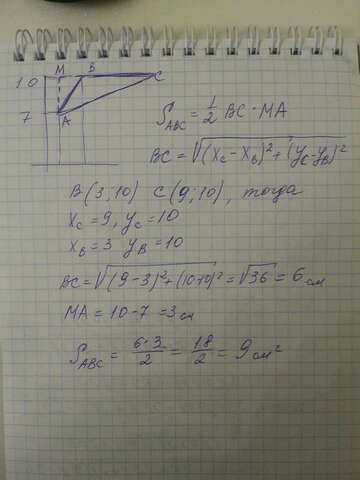 M B C
10
7
A
S_ABC = 1/2 BC · MA
BC = √(x_C - x_B)² + (y_C - y_B)²
B(3,10) C(9,10), тогда
x_C = 9, y_C = 10
x_B = 3 y_B = 10
BC = √(9-3)² + (10+0)² = √36 = 6 см
MA = 10 - 7 = 3 см
S_ABC = 6·3/2 = 18/2 = 9 см²